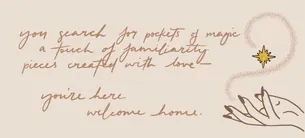 you search for pockets of magic
a touch of familiarity
pieces created with love—
you're here
welcome home.